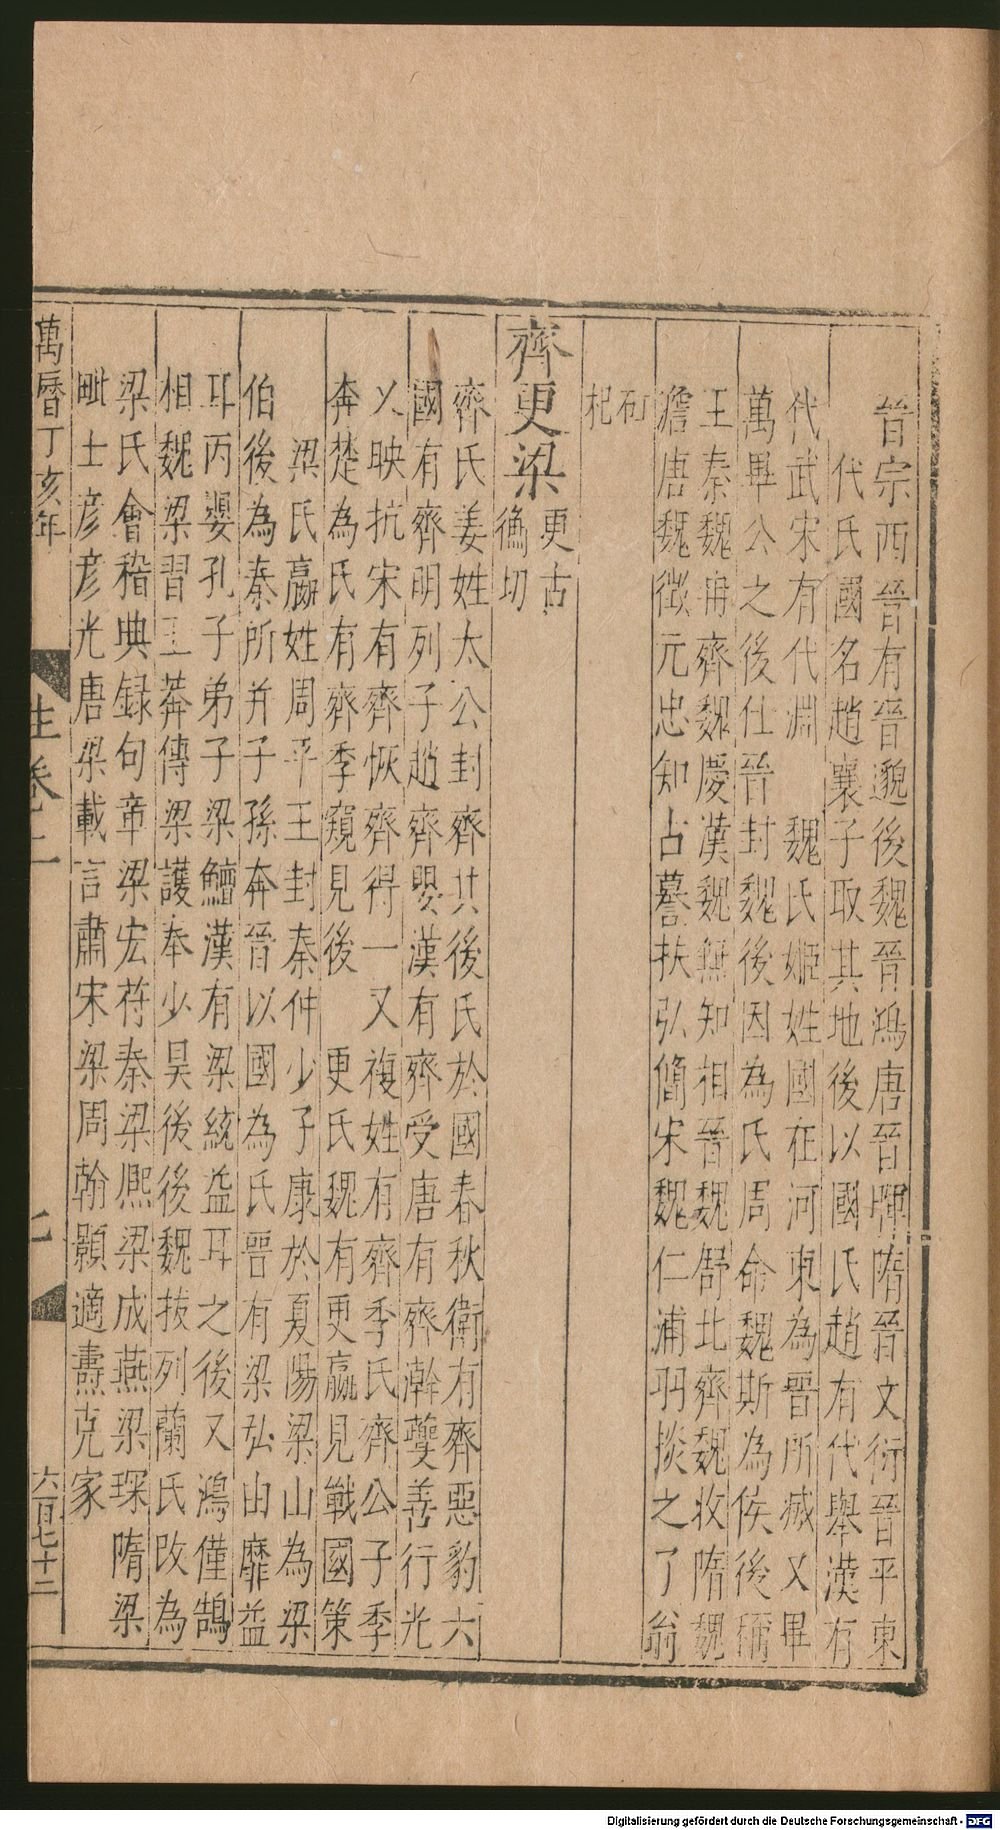 晉宗西晉有晉邈後魏晉鴻唐晉暉隋晉文衍晉平東
代氏國名趙襄子取其地後以國氏趙有代舉漢有
代武宋有代淵　魏氏姬姓國在河東為晉所滅又畢
萬畢公之後仕晉封魏後因為氏周命魏斯為侯後稱
王秦魏冉齊魏慶漢魏無知相晉魏舒北齊魏收隋魏
澹唐魏徵元忠知古謩扶弘簡宋魏仁浦羽掞之了翁
杞
齊更梁更古衡切
齊氏姜姓太公封齊其後氏於國春秋衛有齊惡豹六
國有齊明列子趙齊嬰漢有齊受唐有齊澣夔善行光
乂映抗宋有齊恢齊得一又複姓有齊季氏齊公子季
奔楚為氏有齊季窺見後　更氏魏有更嬴見戰國策
梁氏嬴姓周平王封秦仲少子康於夏陽梁山為梁
伯後為秦所并子孫奔晉以國為氏晉有梁弘由靡益
耳丙嬰孔子弟子梁鱣漢有梁統益耳之後又鴻僅鵠
相魏梁習王莽傳梁護奉少昊後後魏拔列蘭氏改為
梁氏會稽典録句章梁宏苻秦梁熙梁成燕梁琛隋梁
毗士彥彥光唐梁載言肅宋梁周翰顥適燾克家
萬曆丁亥年
生卷二
七
六百七十二
Digitalisierung gefördert durch die Deutsche Forschungsgemeinschaft - DFG